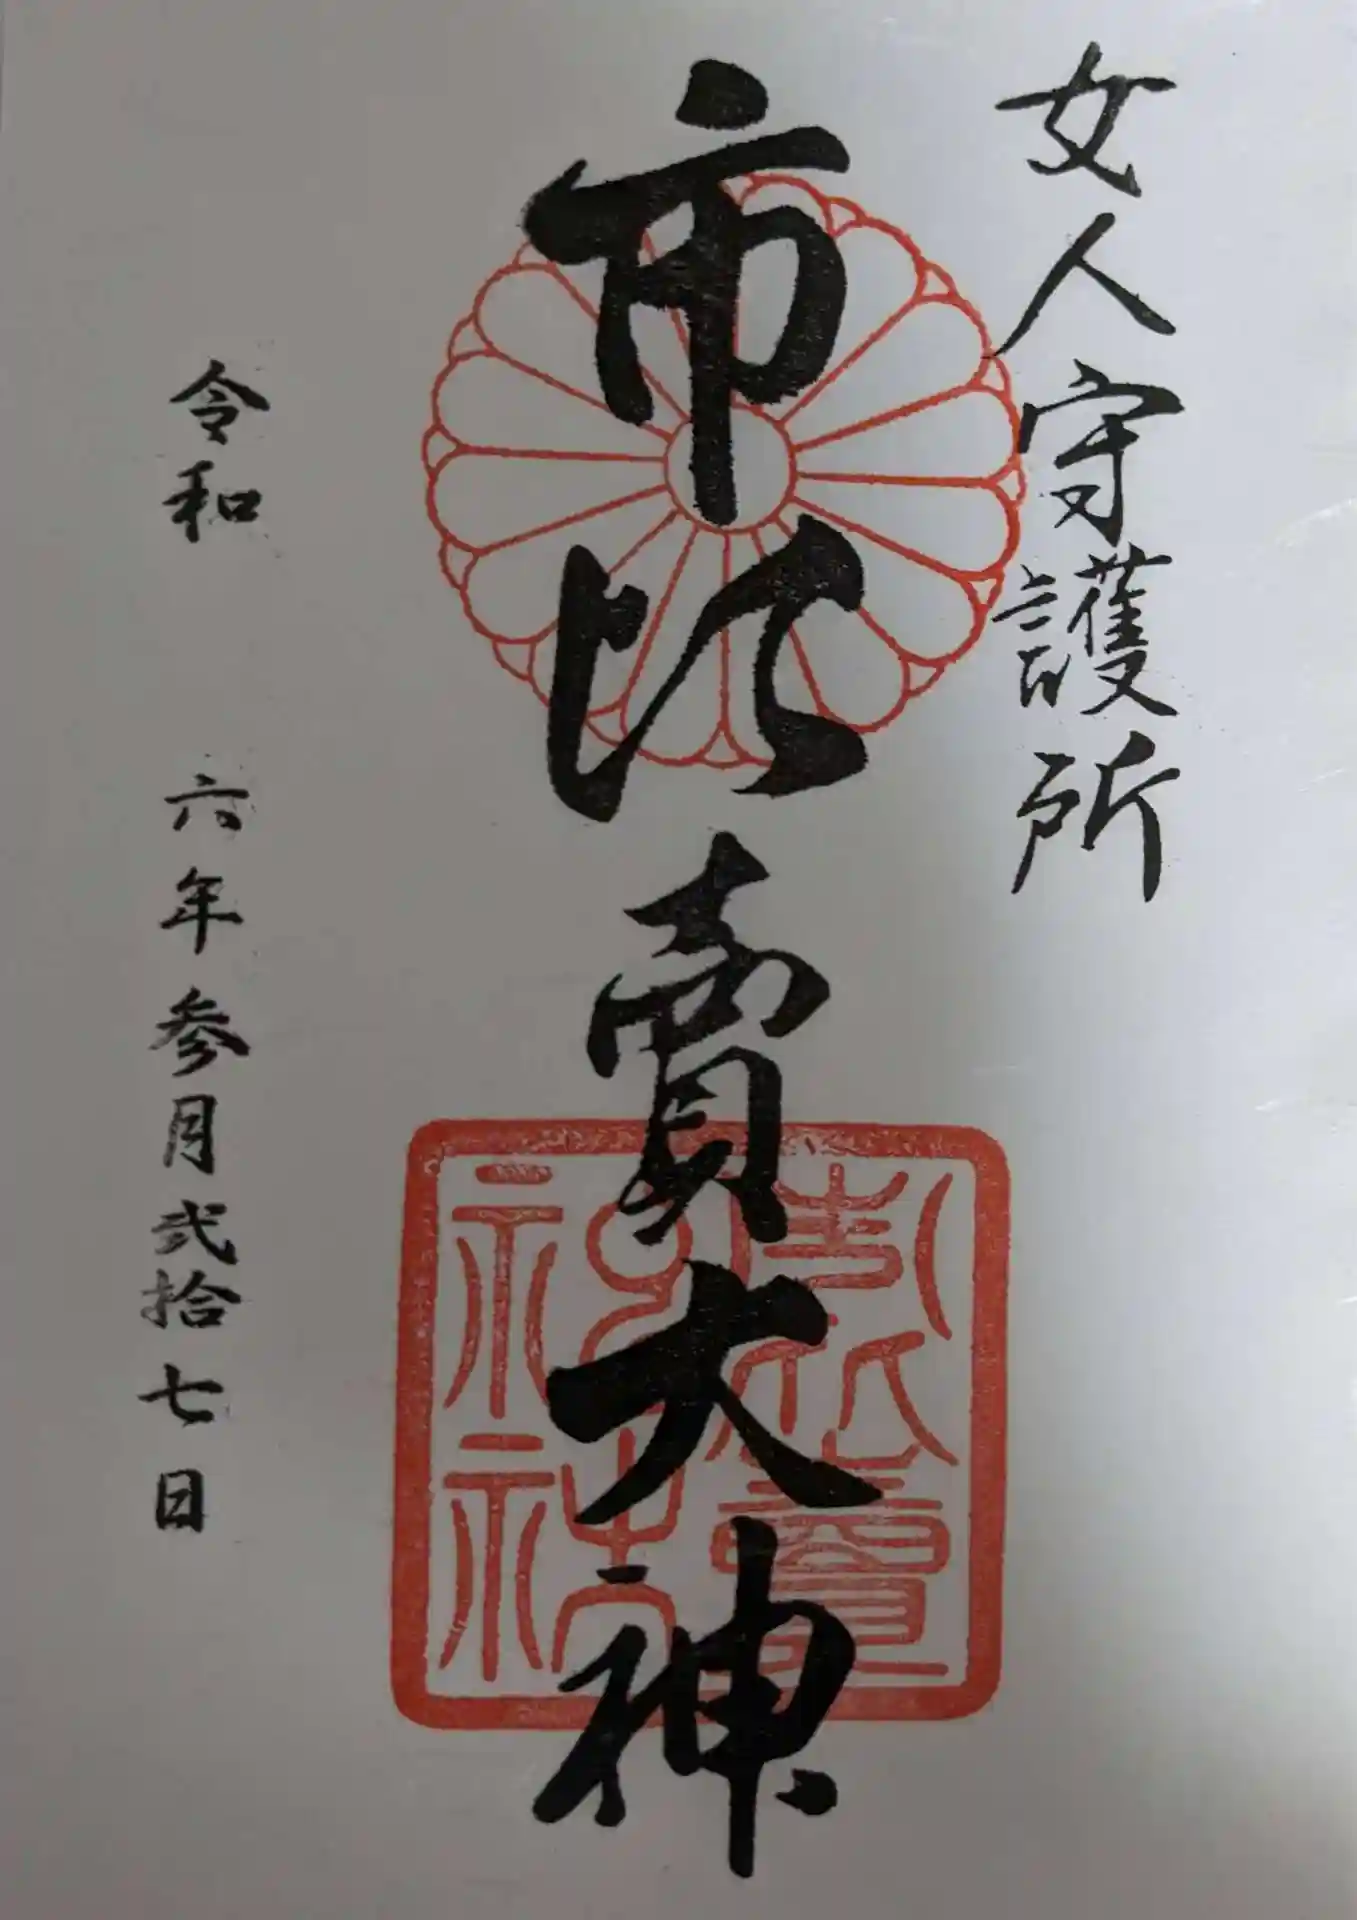 女人守護所
市比賣大神
令和 六年参月弐拾七日